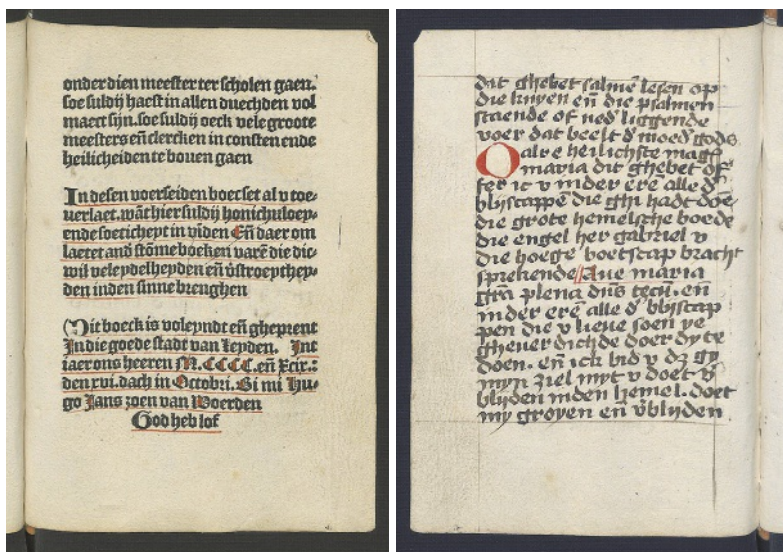 onder dien meester ter scholen gaen.
soe suldij haest in allen duechden vol
maect sijn. soe suldij oeck vele groote
meesters eñ clercken in consten ende
heilicheiden te bouen gaen
In desen voerseiden boec set al v toe-
uerlaet. wãt hier suldij honich vloey-
ende soeticheyt in vĩden Eñ daer om
laetet and stõme boeken varẽ die dic-
wil veleydelheyden eñ v̾stroeythey-
den inden sinne brenghen
Dit boeck is voleyndt eñ gheprent
In die goede stadt van Leyden. Int
iaer ons heeren M.CCCC.eñ xcix.:
den xvi. dach in Octobri. Bi mi Hu-
go Jans zoen van Woerden
God heb lof
dat ghebet salmẽ lesen op
die knyen eñ die psalmen
staende of ned̾ liggende
voer dat beelt d̾ moed̾ gods
O alre heilichste magt
maria dit ghebet of
fer ic v in der erẽ alle d̾
blijscappẽ die ghi hadt doẽ
die grote hemelsche boede
die engel her gabriel v
die hoege boetscap bracht
sprekende Aue maria
grã plena dñs tecũ. eñ
in der erẽ alle d̾ blijscap
pen die v lieue soen ye
gheuer dichde doer dy te
doen. eñ ick bid v dz gy
myn ziel myt v doet v̾
blijden inden hemel. doet
my groyen eñ v̾blijden